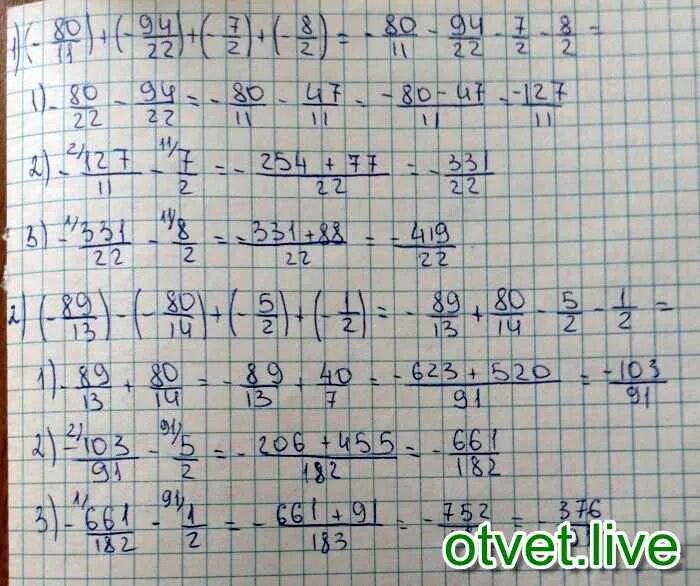 1) (-80/11) + (-94/22) + (-7/2) + (-8/2) = -80/11 - 94/22 - 7/2 - 8/2 =
1) -80/22 - 94/22 = -80/11 - 47/11 = -80-47/11 = -127/11
2) -2/127/11 - 11/7/2 = -254+77/22 = -331/22
3) -1/331/22 - 11/8/2 = -331+88/22 = -419/22
2) (-89/13) - (-80/14) + (-5/2) + (-1/2) = -89/13 + 80/14 - 5/2 - 1/2 =
1) -89/13 + 80/14 = -89/13 + 40/7 = -623+520/91 = -103/91
2) -2/103/91 - 91/5/2 = -206+455/182 = -661/182
3) -1/661/182 - 91/1/2 = -661+91/183 = -752 = -376
otvet.live